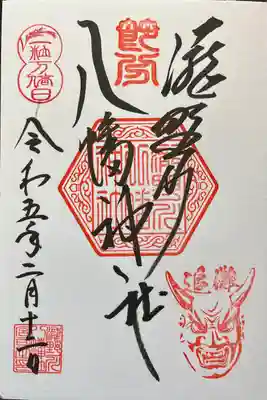 瀧野川
八幡神社
節分
追儺
一粒万倍日
令和五年二月十二日